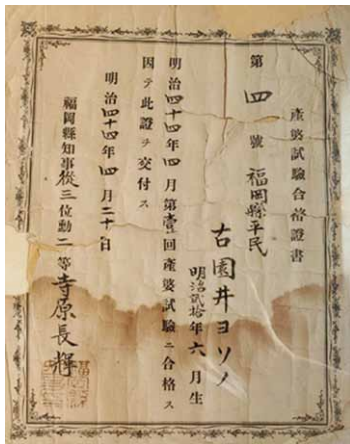 産婆試驗合格證書
第四號
福岡縣平民
古園井ヨソノ
明治貳拾年六月生
明治四十四年四月第壹回産婆試驗ニ合格ス
因テ此證ヲ交付ス
明治四十四年四月二十日
福岡縣知事從三位勳二等寺原長輝